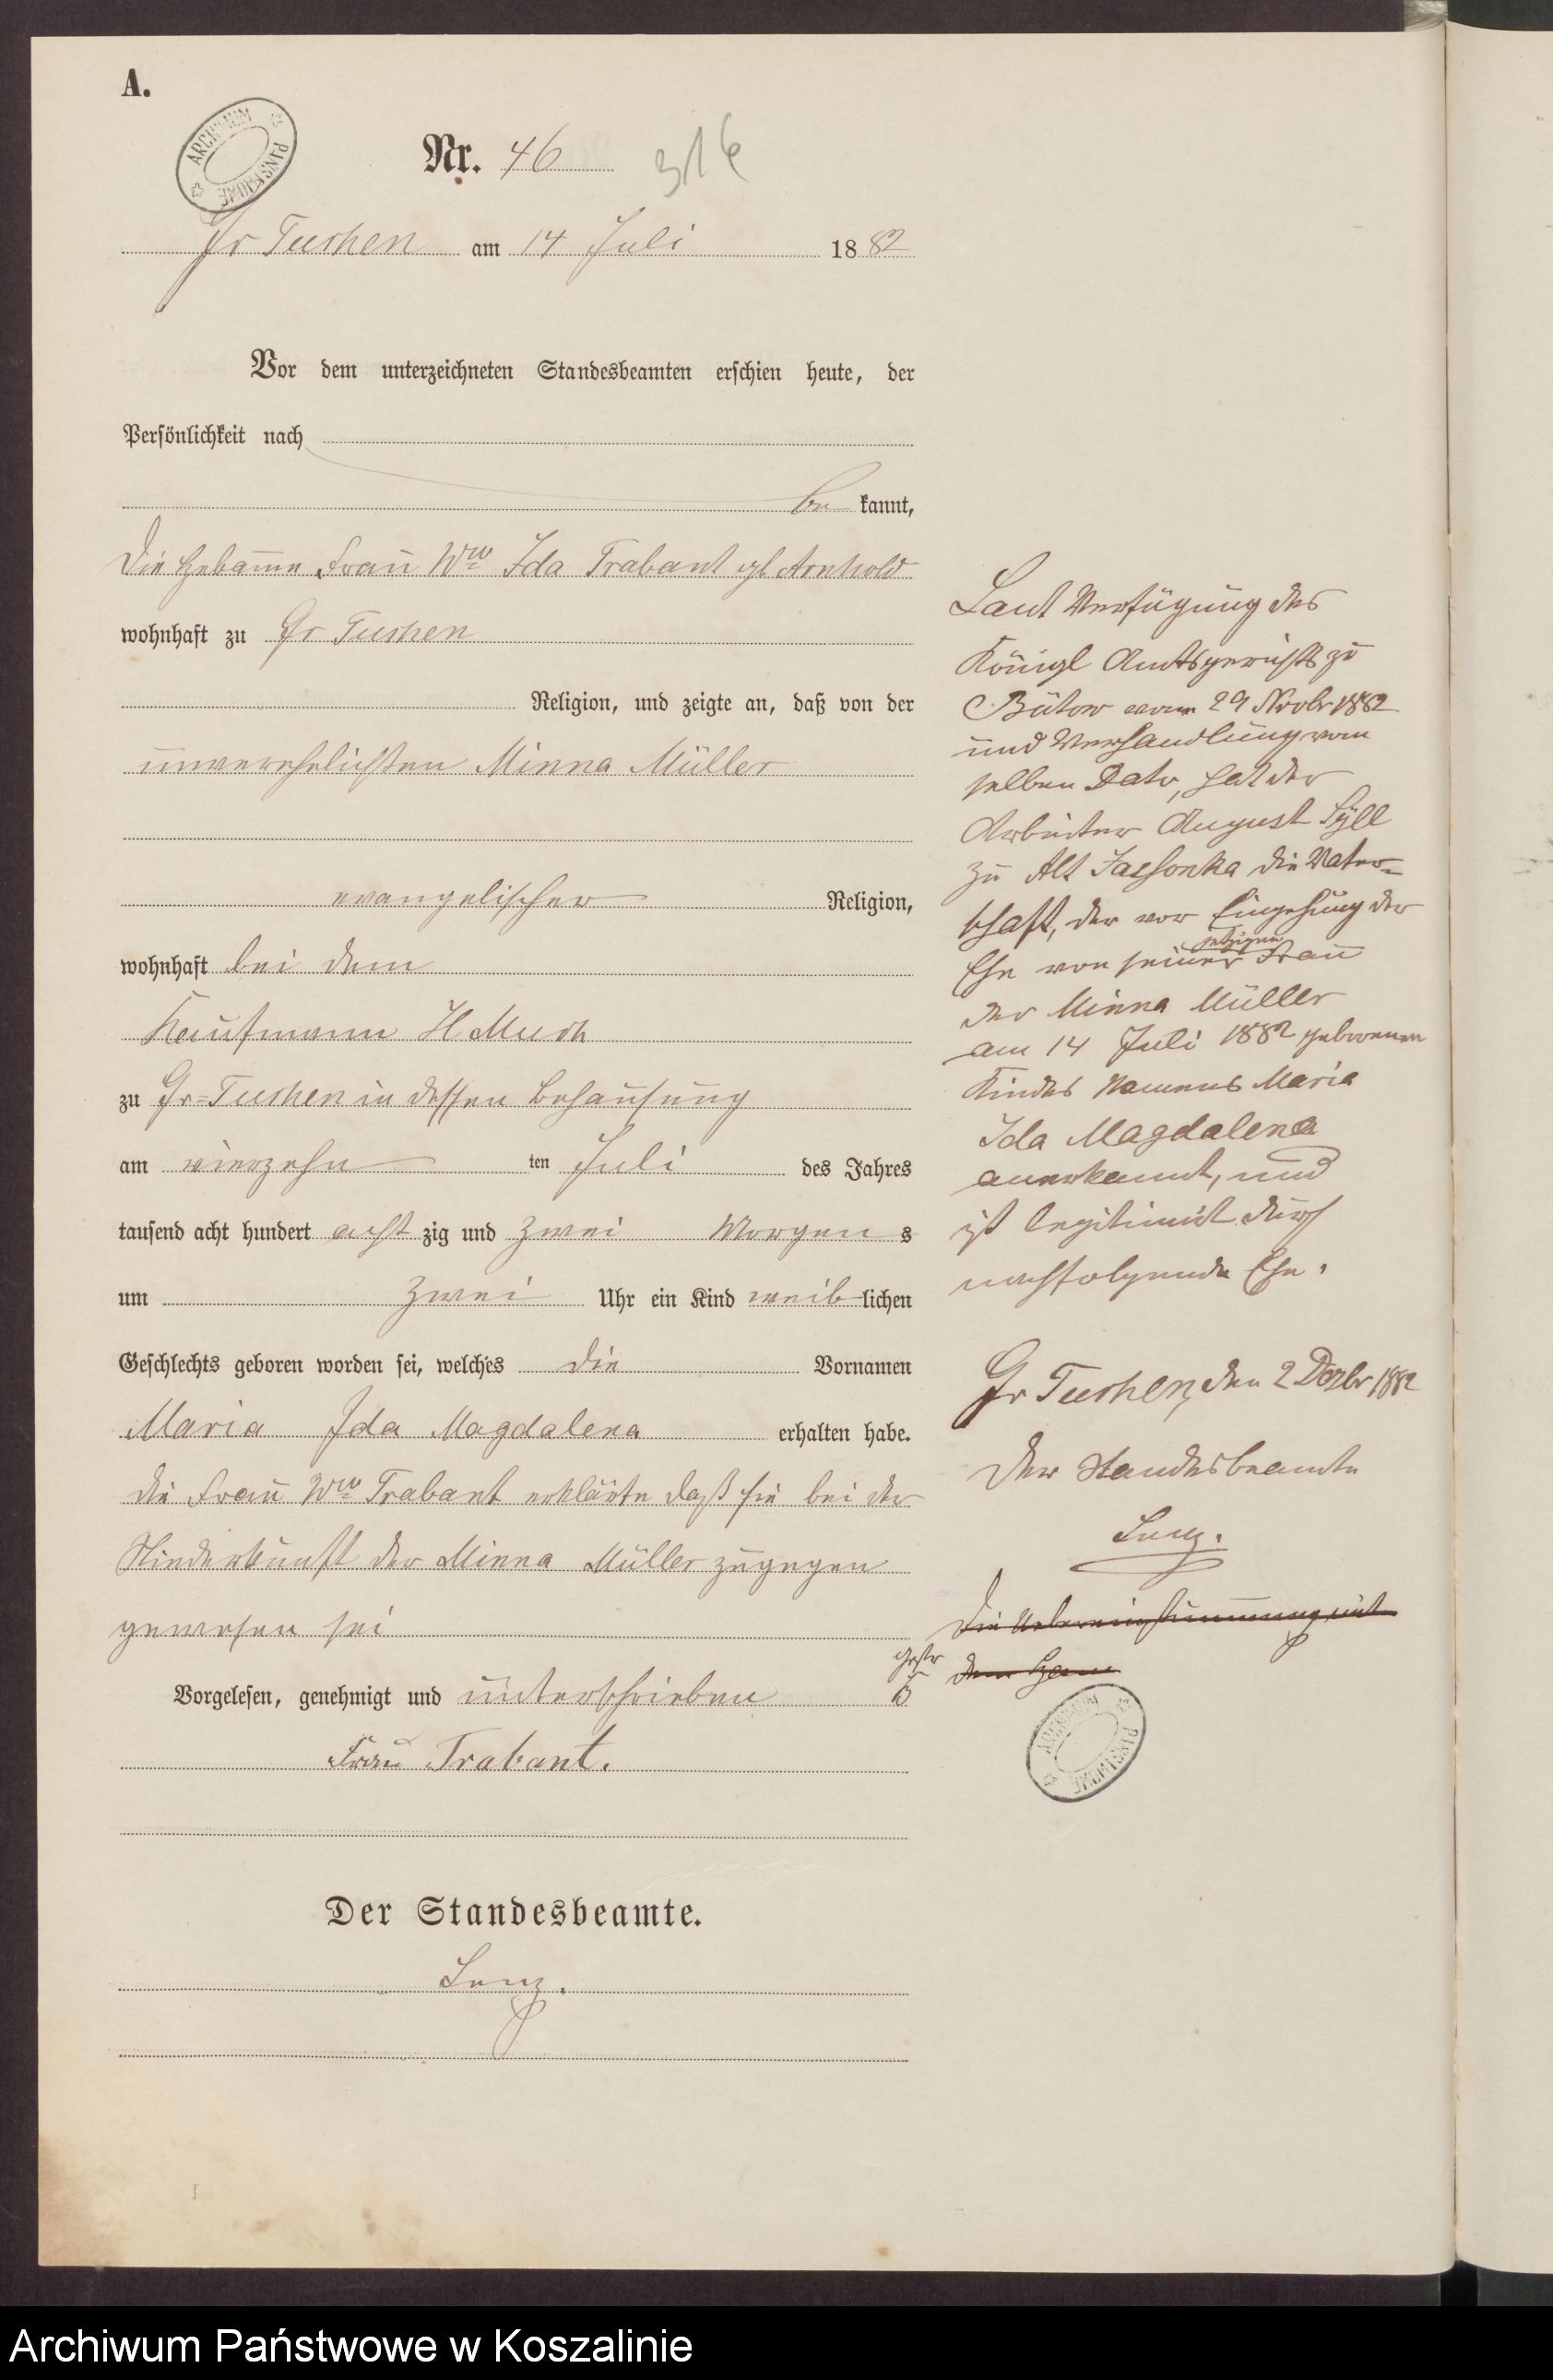 A.
ARCHIWUM PAŃSTWOWE
Nr. 46
316
Gr Tuchen am 14 Juli 1882
Vor dem unterzeichneten Standesbeamten erschien heute, der
Persönlichkeit nach
be kannt,
die Hebamme Frau Ww Ida Trabant gb Arnhold
wohnhaft zu Gr Tuchen
Religion, und zeigte an, daß von der
unverehelichten Minna Müller
evangelischer Religion,
wohnhaft bei dem
Kaufmann H. Much
zu Gr=Tuchen in dessen Behausung
am vierzehn ten Juli des Jahres
tausend acht hundert acht zig und zwei Morgens
um zwei Uhr ein Kind weiblichen
Geschlechts geboren worden sei, welches die Vornamen
Maria Ida Magdalena erhalten habe.
die Frau Ww Trabant erklärte daß sie bei der
Niederkunft der Minna Müller zugegen
gewesen sei
Vorgelesen, genehmigt und unterschrieben
Frau Trabant.
Der Standesbeamte.
Lenz.
Laut Verfügung des
Königl Amtsgerichts zu
Bütow vom 29 Novbr 1882
und Verhandlung vom
selben Dato, hat der
Arbeiter August Syll
zu Alt Jassonka die Vater-
schaft, der vor Eingehung der
jetzigen
Ehe von seiner Frau
der Minna Müller
am 14 Juli 1882 geborenen
Kindes Namens Maria
Ida Magdalena
anerkannt, und
ist legitimirt durch
nachfolgende Ehe.
Gr Tuchen, den 2 Dezbr 1882
Der Standesbeamte
Lenz.
Die Uebereinstimmung mit
dem
ARCHIWUM PAŃSTWOWE
Archiwum Państwowe w Koszalinie